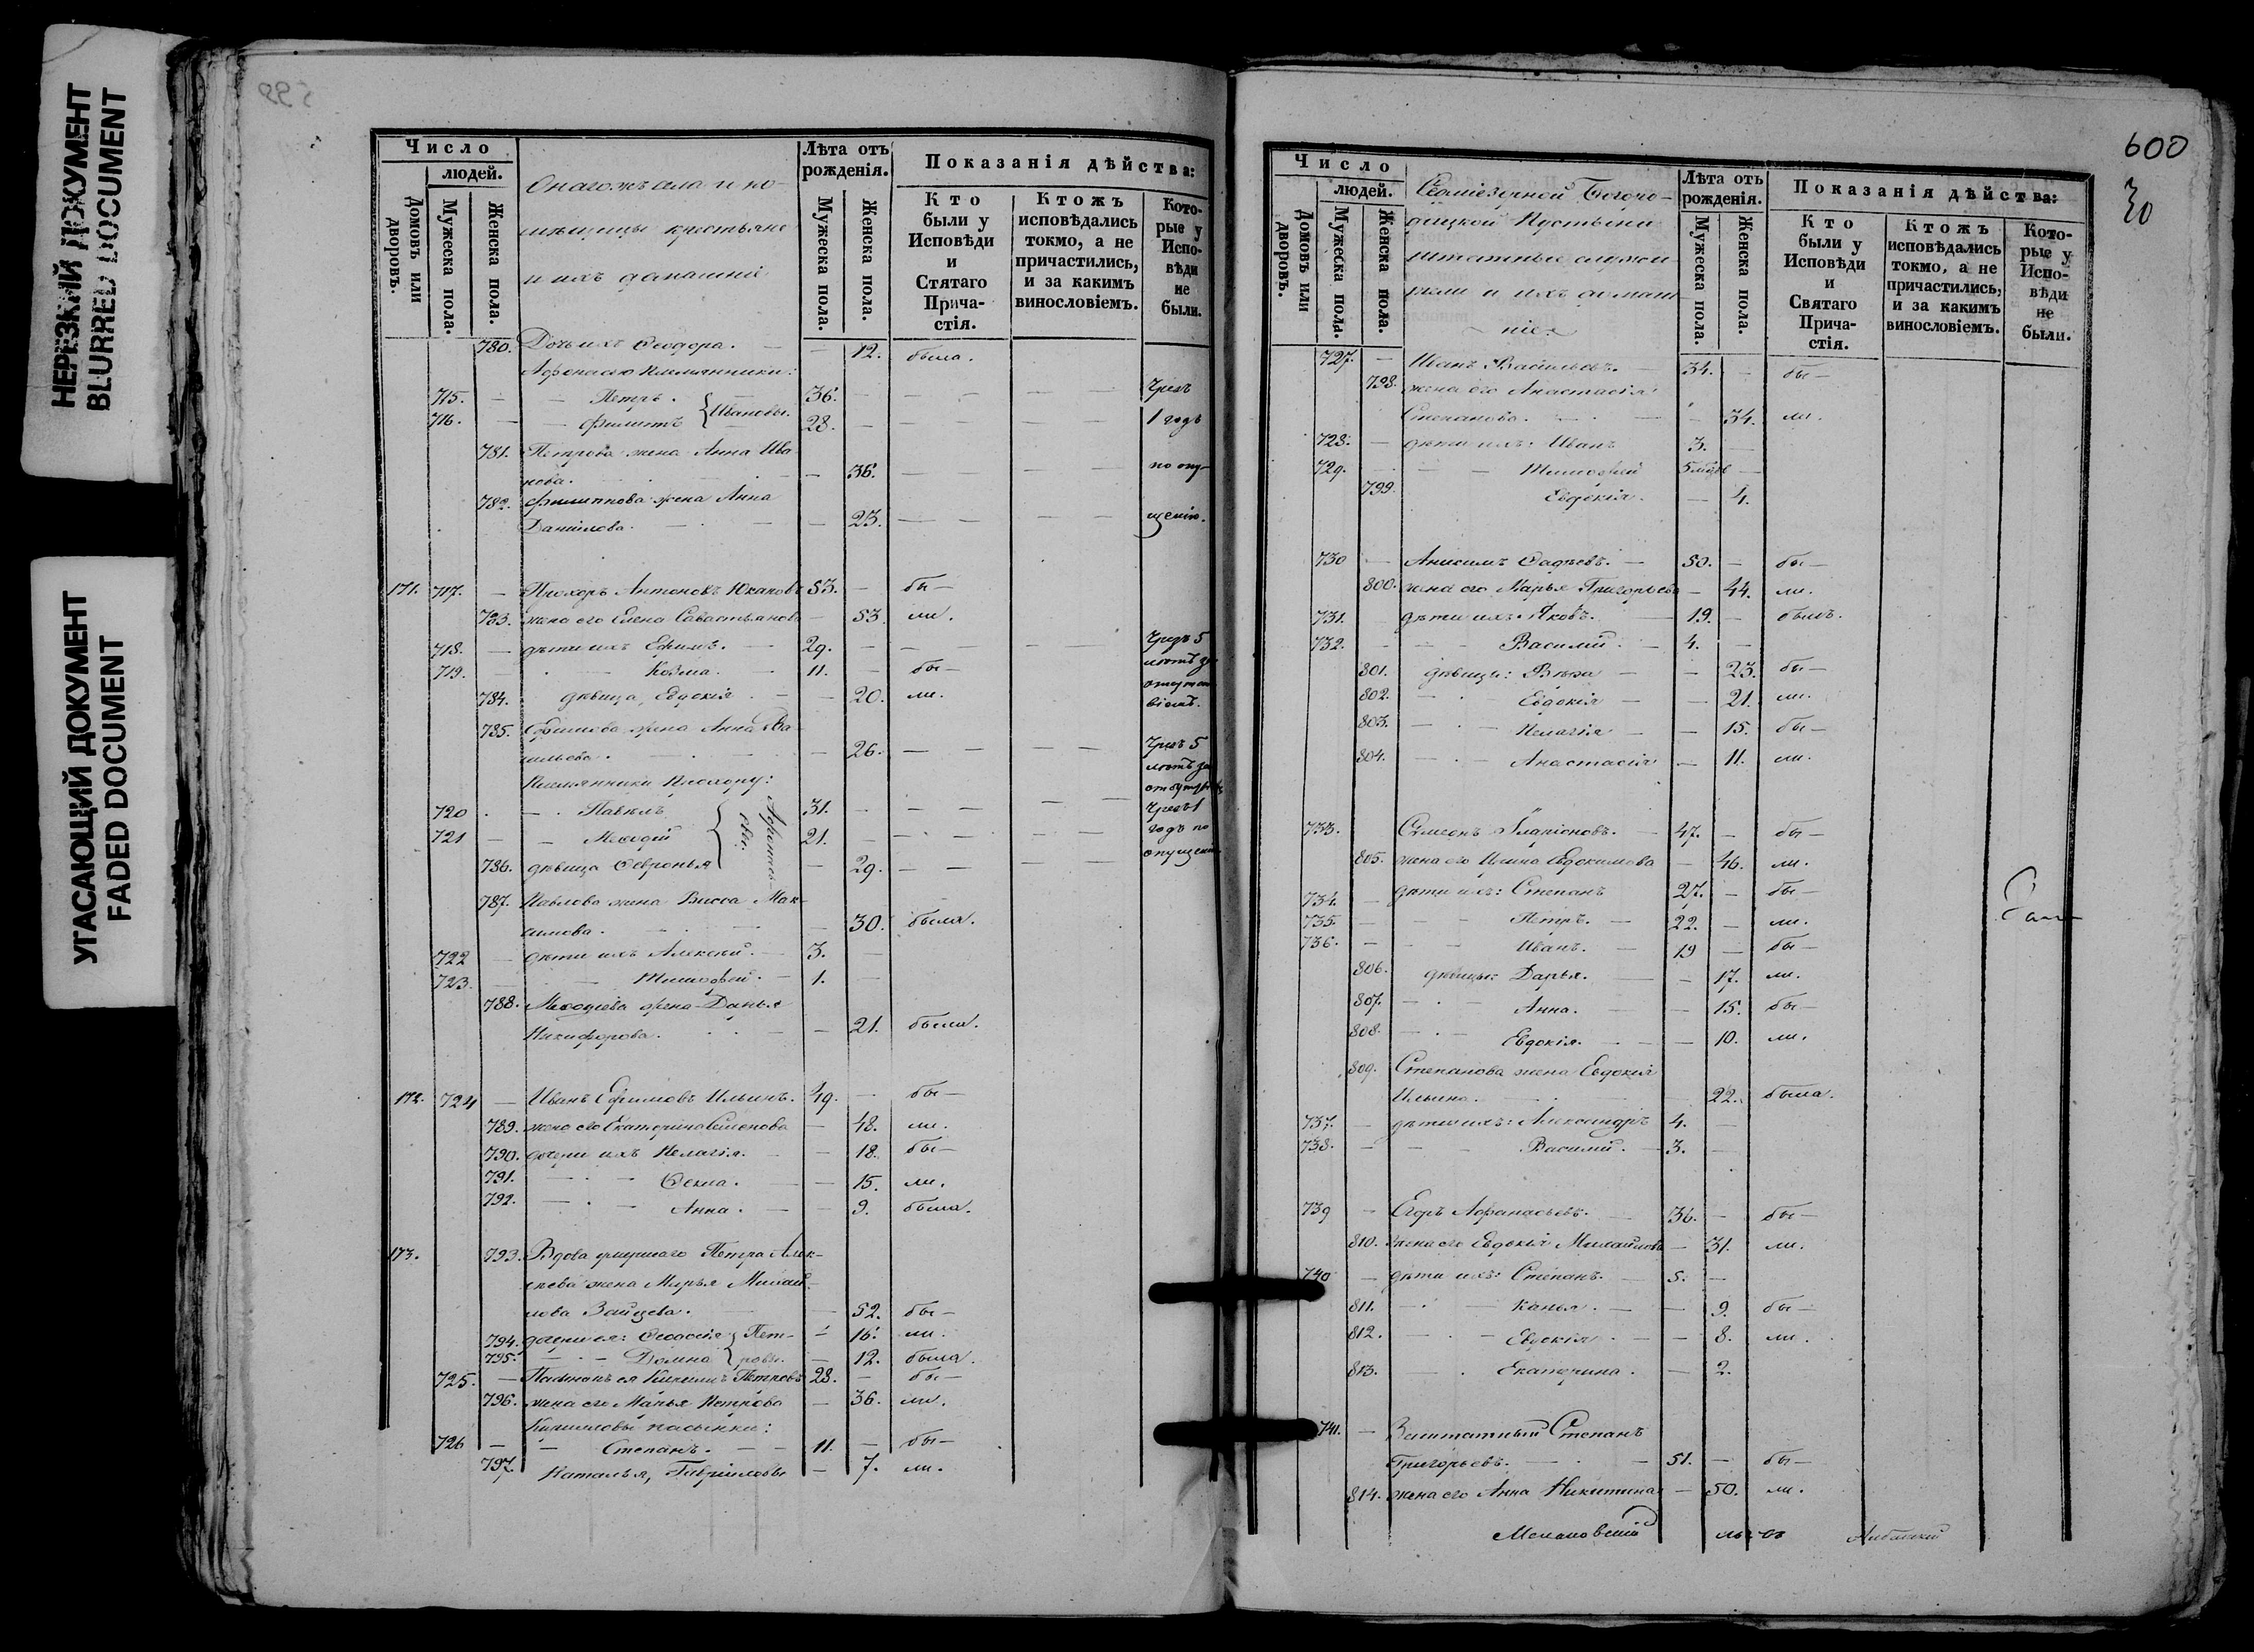 НЕРЕЗКИЙ ДОКУМЕНТ
BLURRED DOCUMENT
УГАСАЮЩИЙ ДОКУМЕНТ
FADED DOCUMENT
599
Число
людей.
Домовъ или дворовъ.
Мужеска пола.
Женска пола.
Онагожъ села и по-
мѣщицы крестьяне
и ихъ домашніе
Лѣта отъ рожденія.
Мужеска пола.
Женска пола.
Показанія дѣйства:
Кто были у Исповѣди и Стятаго Прича-стія.
Ктожъ исповѣдались токмо, а не причастились, и за какимъ винословіемъ.
Кото-рые у Испо-вѣди не были.
780. Дочь ихъ Ѳеодора. — — 12. была.
Афонасью племянники:
715. — — Петръ. 36. — — — — — Чрезъ
716. — — Филиппъ Ивановы. 28. — — — — — 1 годъ
781. Петрова жена Анна Ива-
нова. — 36. — — — — по опу-
782. Филиппова жена Анна
Данилова. — — — 23. — — — — щенію.
171. 717. — Прохоръ Антоновъ 53. — бы—
783. жена его Елена Савастьянова — 53. ли.
718. — дѣти ихъ Ефимъ. — 29. — — — — Чрезъ 5
719. — Козма. — 11. — бы— лѣтъ за
784. дѣвица, Евдокія — — 20. ли.
785. Ефимова жена Анна Ва-
сильева. — 26. — — — — Чрезъ 5
Племянники Прохору: лѣтъ за
720 — Павелъ 31. — — — — — Чрезъ 1
721 — — Меѳодій 21. — — — — годъ по
786. дѣвица Ѳевронья — 29. — — опущенію
787. Павлова жена Васса Мак-
симова. — 30. была.
722 — дѣти ихъ Алексѣй. — 3. —
723. — Тимоѳей. — 1. —
788. Меѳодіева жена Дарья
Никифорова. — 21. была.
172. 724 — Иванъ Ефимовъ Ильинъ. 49. — бы—
789. жена его Екатерина Семенова — 48. ли.
790. дочери ихъ Пелагія. — — 18. бы—
791. — — Ѳекла. — — 15. ли.
792. — — Анна. — — 9. была.
173. 793. Вдова умершаго Петра Алек-
сѣева жена Марья Михай-
лова Зайцева. — — 52. бы—
794. дочери ея: Ѳеодосія Пет- — 16. ли.
795. — — Домна ровы. — 12. была.
725. — ея Кириллъ Петровъ 28. — бы—
796. жена его Марья Петрова — 36. ли.
Кирилловы пасынки:
726 — — Степанъ. — — 11. — бы—
797. Наталья, Гавриловы — 7. ли.
600
30
Число
людей.
Домовъ или дворовъ.
Мужеска пола.
Женска пола.
Седміезерной Богоро-
дицкой Пустыни
штатные служи-
тели и ихъ домаш-
ніе
Лѣта отъ рожденія.
Мужеска пола.
Женска пола.
Показанія дѣйства:
Кто были у Исповѣди и Святаго Прича-стія.
Ктожъ исповѣдались токмо, а не причастились, и за какимъ винословіемъ.
Кото-рые у Испо-вѣди не были.
727. — Иванъ Васильевъ. — 34. — бы—
798. жена его Анастасія
Степанова. — — 34. ли.
728. — дѣти ихъ: Иванъ 3. —
729. — — — Тимоѳей —
799. Евдокія. — 4.
730 — Анисимъ — 50. — бы—
800. жена его Марья Григорьева — 44. ли.
731. дѣти ихъ: Яковъ. — 19. — былъ.
732. — — Василій. — 4. —
801. дѣвицы: Вѣра — — 23. бы—
802. — — Евдокія — — 21. ли.
803. — — Пелагія — — 15. бы—
804. — — Анастасія — 11. ли.
733. Сѵмеонъ Иларіоновъ. — 47. — бы—
805. жена его Ирина Евдокимова — 46. ли.
734. — дѣти ихъ: Степанъ 27. — бы—
735. — — — Петръ. — 22. — ли.
736. — — — Иванъ. — 19 — бы—
806. дѣвицы: Дарья. — — 17. ли.
807. — — Анна. — — 15. бы—
808. — — Евдокія. — — 10. ли.
809. Степанова жена Евдокія
Ильина. — — 22. была.
737. — дѣти ихъ: Александръ 4. —
738. — — — Василій. — 3. —
739 — Егоръ Афанасьевъ. — 36. — бы—
810. жена его Евдокія Михайлова — 31. ли.
740 — дѣти ихъ: Степанъ. — 5. —
811. — — — — 9. бы—
812. — — Евдокія — — 8. ли.
813. — Екатерина. — 2.
741. — Заштатный Степанъ
Григорьевъ. — — 51. — бы—
814. жена его Анна Никитина — 50. ли.